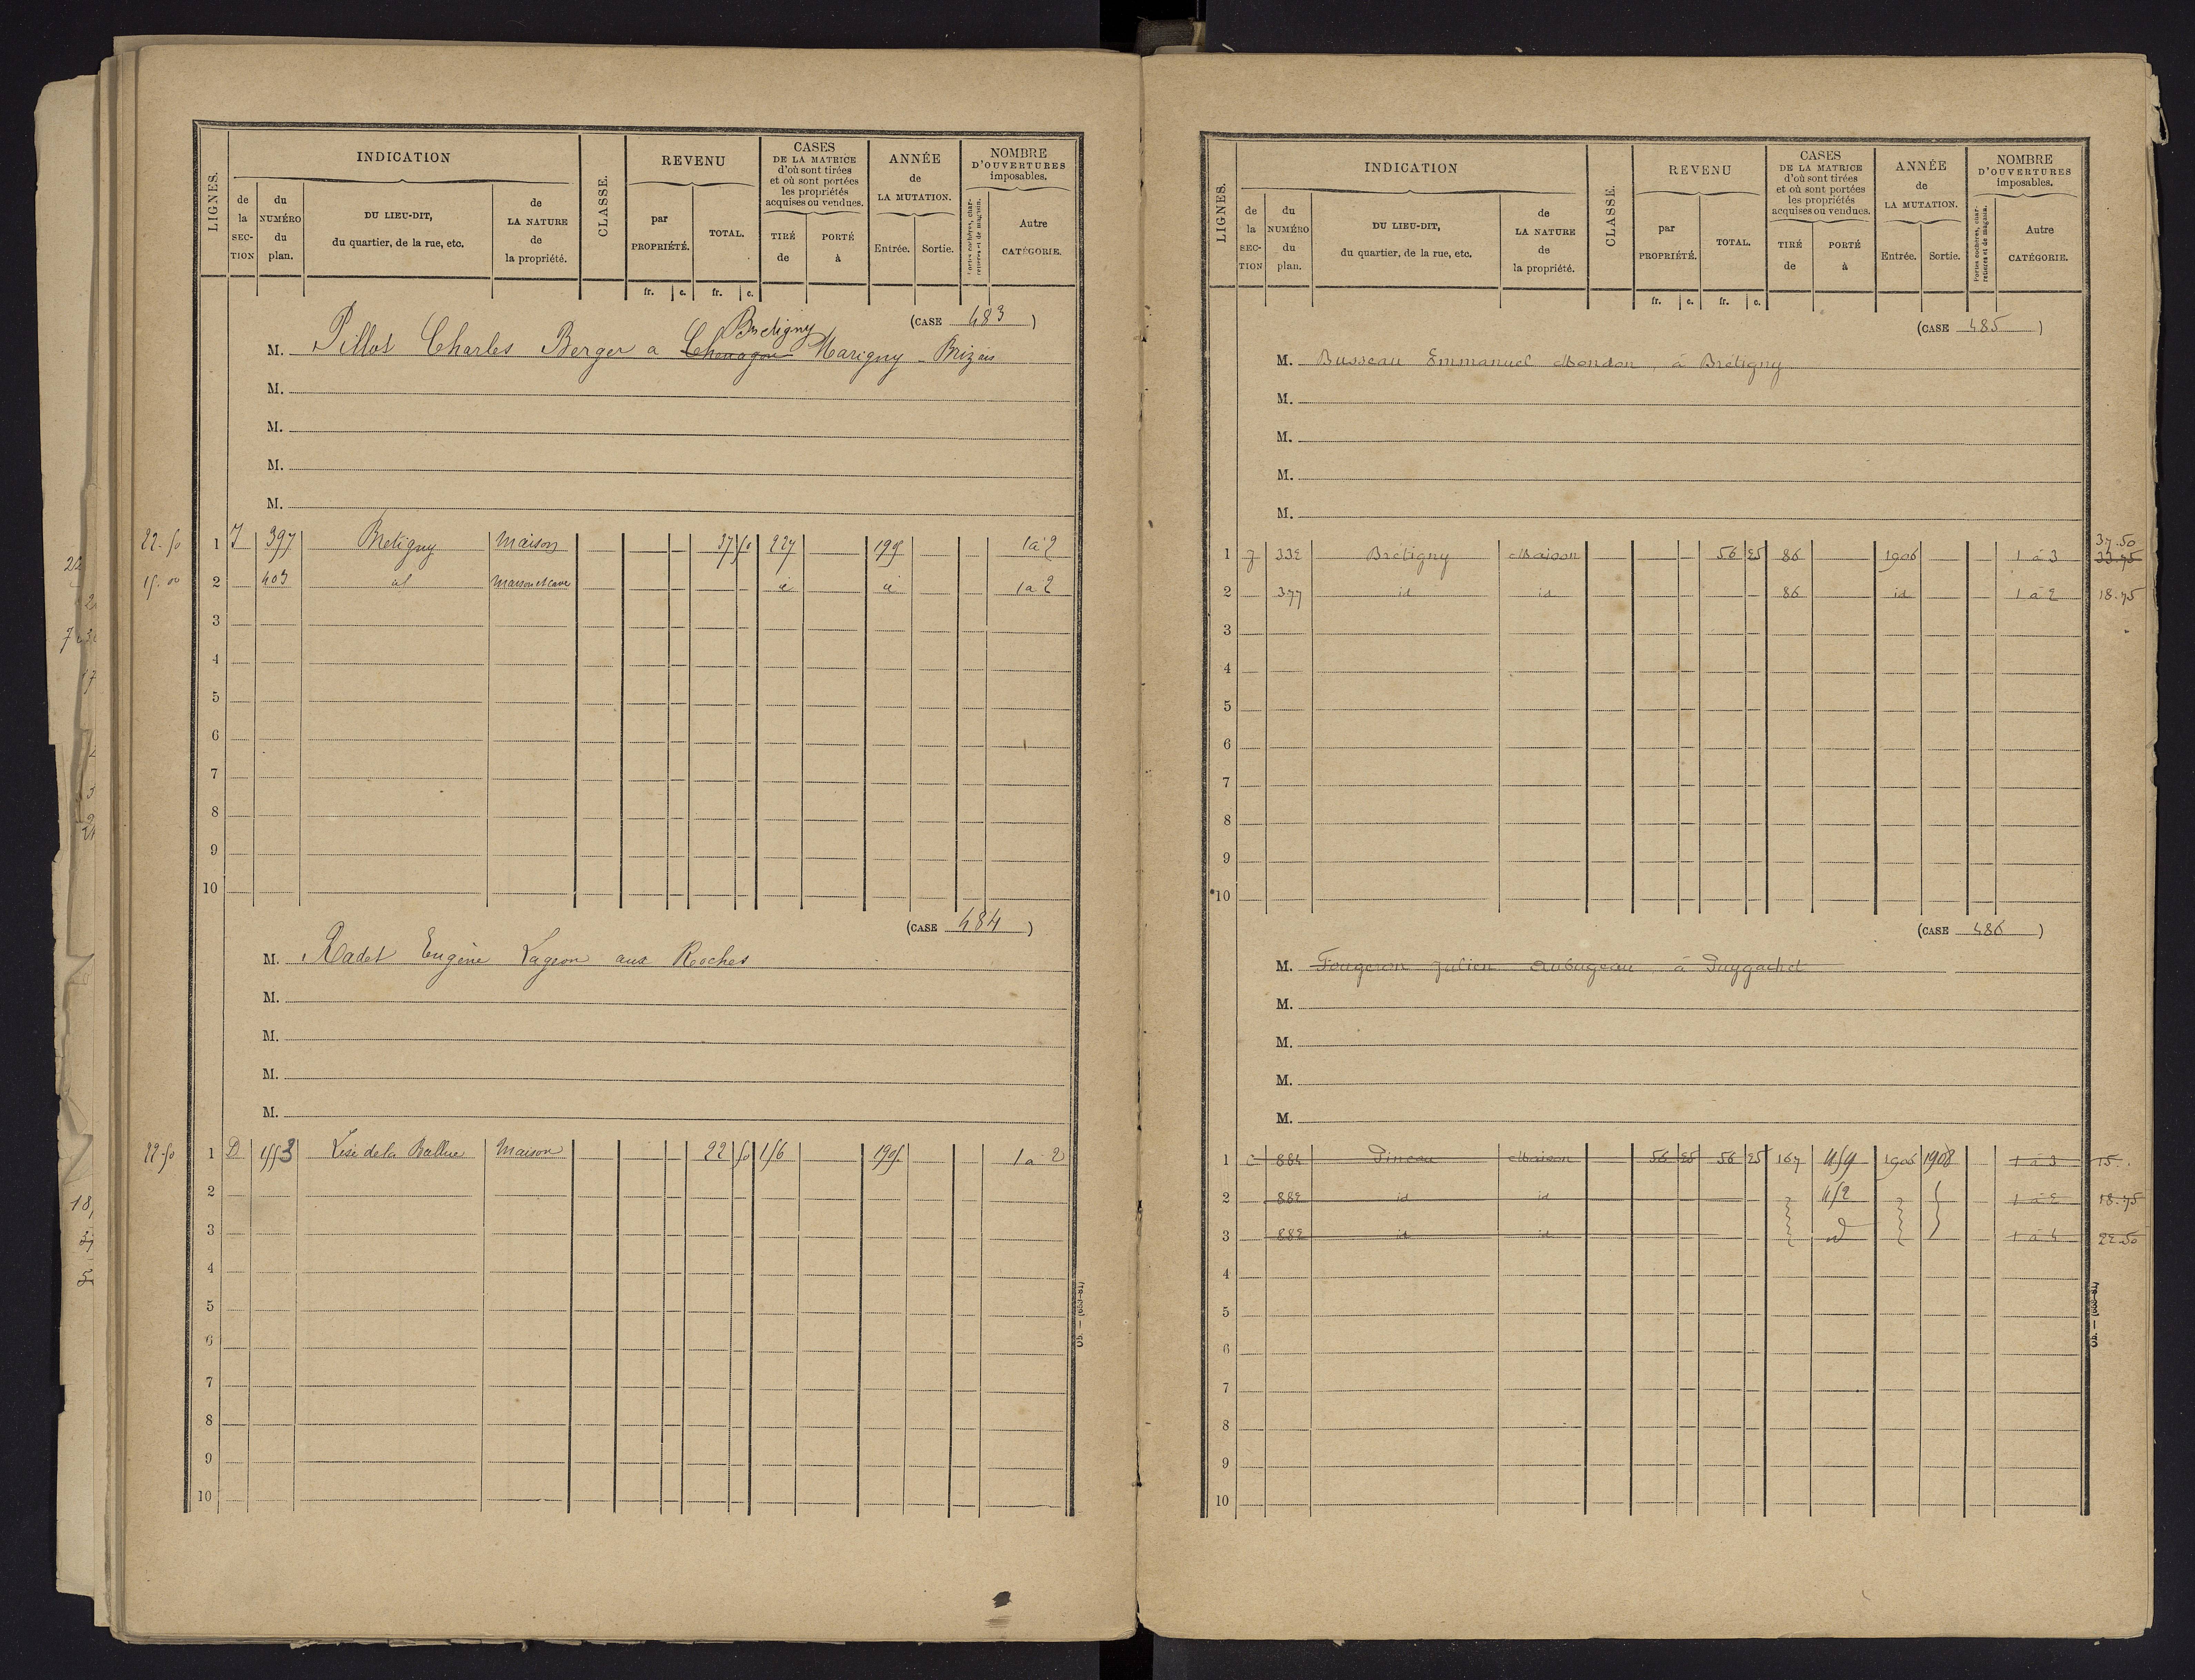 LIGNES.
INDICATION
de la SEC-TION
du NUMÉRO du plan.
DU LIEU-DIT, du quartier, de la rue, etc.
de LA NATURE de la propriété.
CLASSE.
REVENU
par PROPRIÉTÉ.
TOTAL.
fr. c. fr. c.
CASES DE LA MATRICE d'où sont tirées et où sont portées les propriétés acquises ou vendues.
TIRÉ de
PORTÉ à
ANNÉE de LA MUTATION.
Entrée. Sortie.
NOMBRE D'OUVERTURES imposables.
Portes cochères, charretières et de magasin.
Autre CATÉGORIE.
(CASE 483)
Bretigny
M. Pillot Charles Berger a Marigny-Brizais
M.
M.
M.
M.
22.50 1 J 397 Bretigny Maison 37 50 227 1 à 2
15.00 2 403 id Maison et cave id id 1 à 2
3
4
5
6
7
8
9
10
(CASE 484)
M. Radet Eugène Lageon aux Roches
M.
M.
M.
M.
22.50 1 D 1553 de la Ballue Maison 22 50 156 1905 1 à 2
2
3
4
5
6
7
8
9
10
Ob. — (663-81)
LIGNES.
INDICATION
de la SEC-TION
du NUMÉRO du plan.
DU LIEU-DIT, du quartier, de la rue, etc.
de LA NATURE de la propriété.
CLASSE.
REVENU
par PROPRIÉTÉ.
TOTAL.
fr. c. fr. c.
CASES DE LA MATRICE d'où sont tirées et où sont portées les propriétés acquises ou vendues.
TIRÉ de
PORTÉ à
ANNÉE de LA MUTATION.
Entrée. Sortie.
NOMBRE D'OUVERTURES imposables.
Portes cochères, charretières et de magasin.
Autre CATÉGORIE.
(CASE 485)
M. Busseau Emmanuel Mondon, à Brétigny
M.
M.
M.
M.
37.50
1 J 332 Brétigny Maison 56 25 86 1906 1 à 3 33.75
2 377 id id 86 id 1 à 2 18.75
3
4
5
6
7
8
9
10
(CASE 486)
M. Fougeron Julien Aubugeau, à Puygachet
M.
M.
M.
M.
1 C 884 Pineau Maison 56 25 56 25 167 459 1906 1908 1 à 3 15.
2 882 id id 452 1 à 2 18.75
3 882 id id id 1 à 4 22.50
4
5
6
7
8
9
10
Ob. — (663-81)